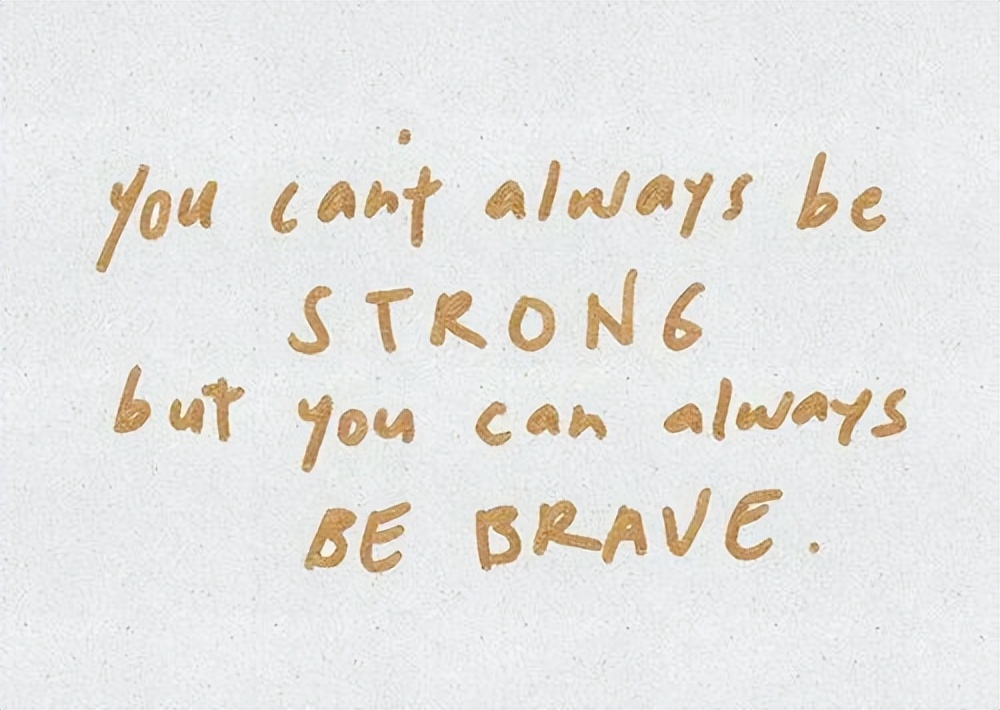 you can't always be
STRONG
but you can always
BE BRAVE.